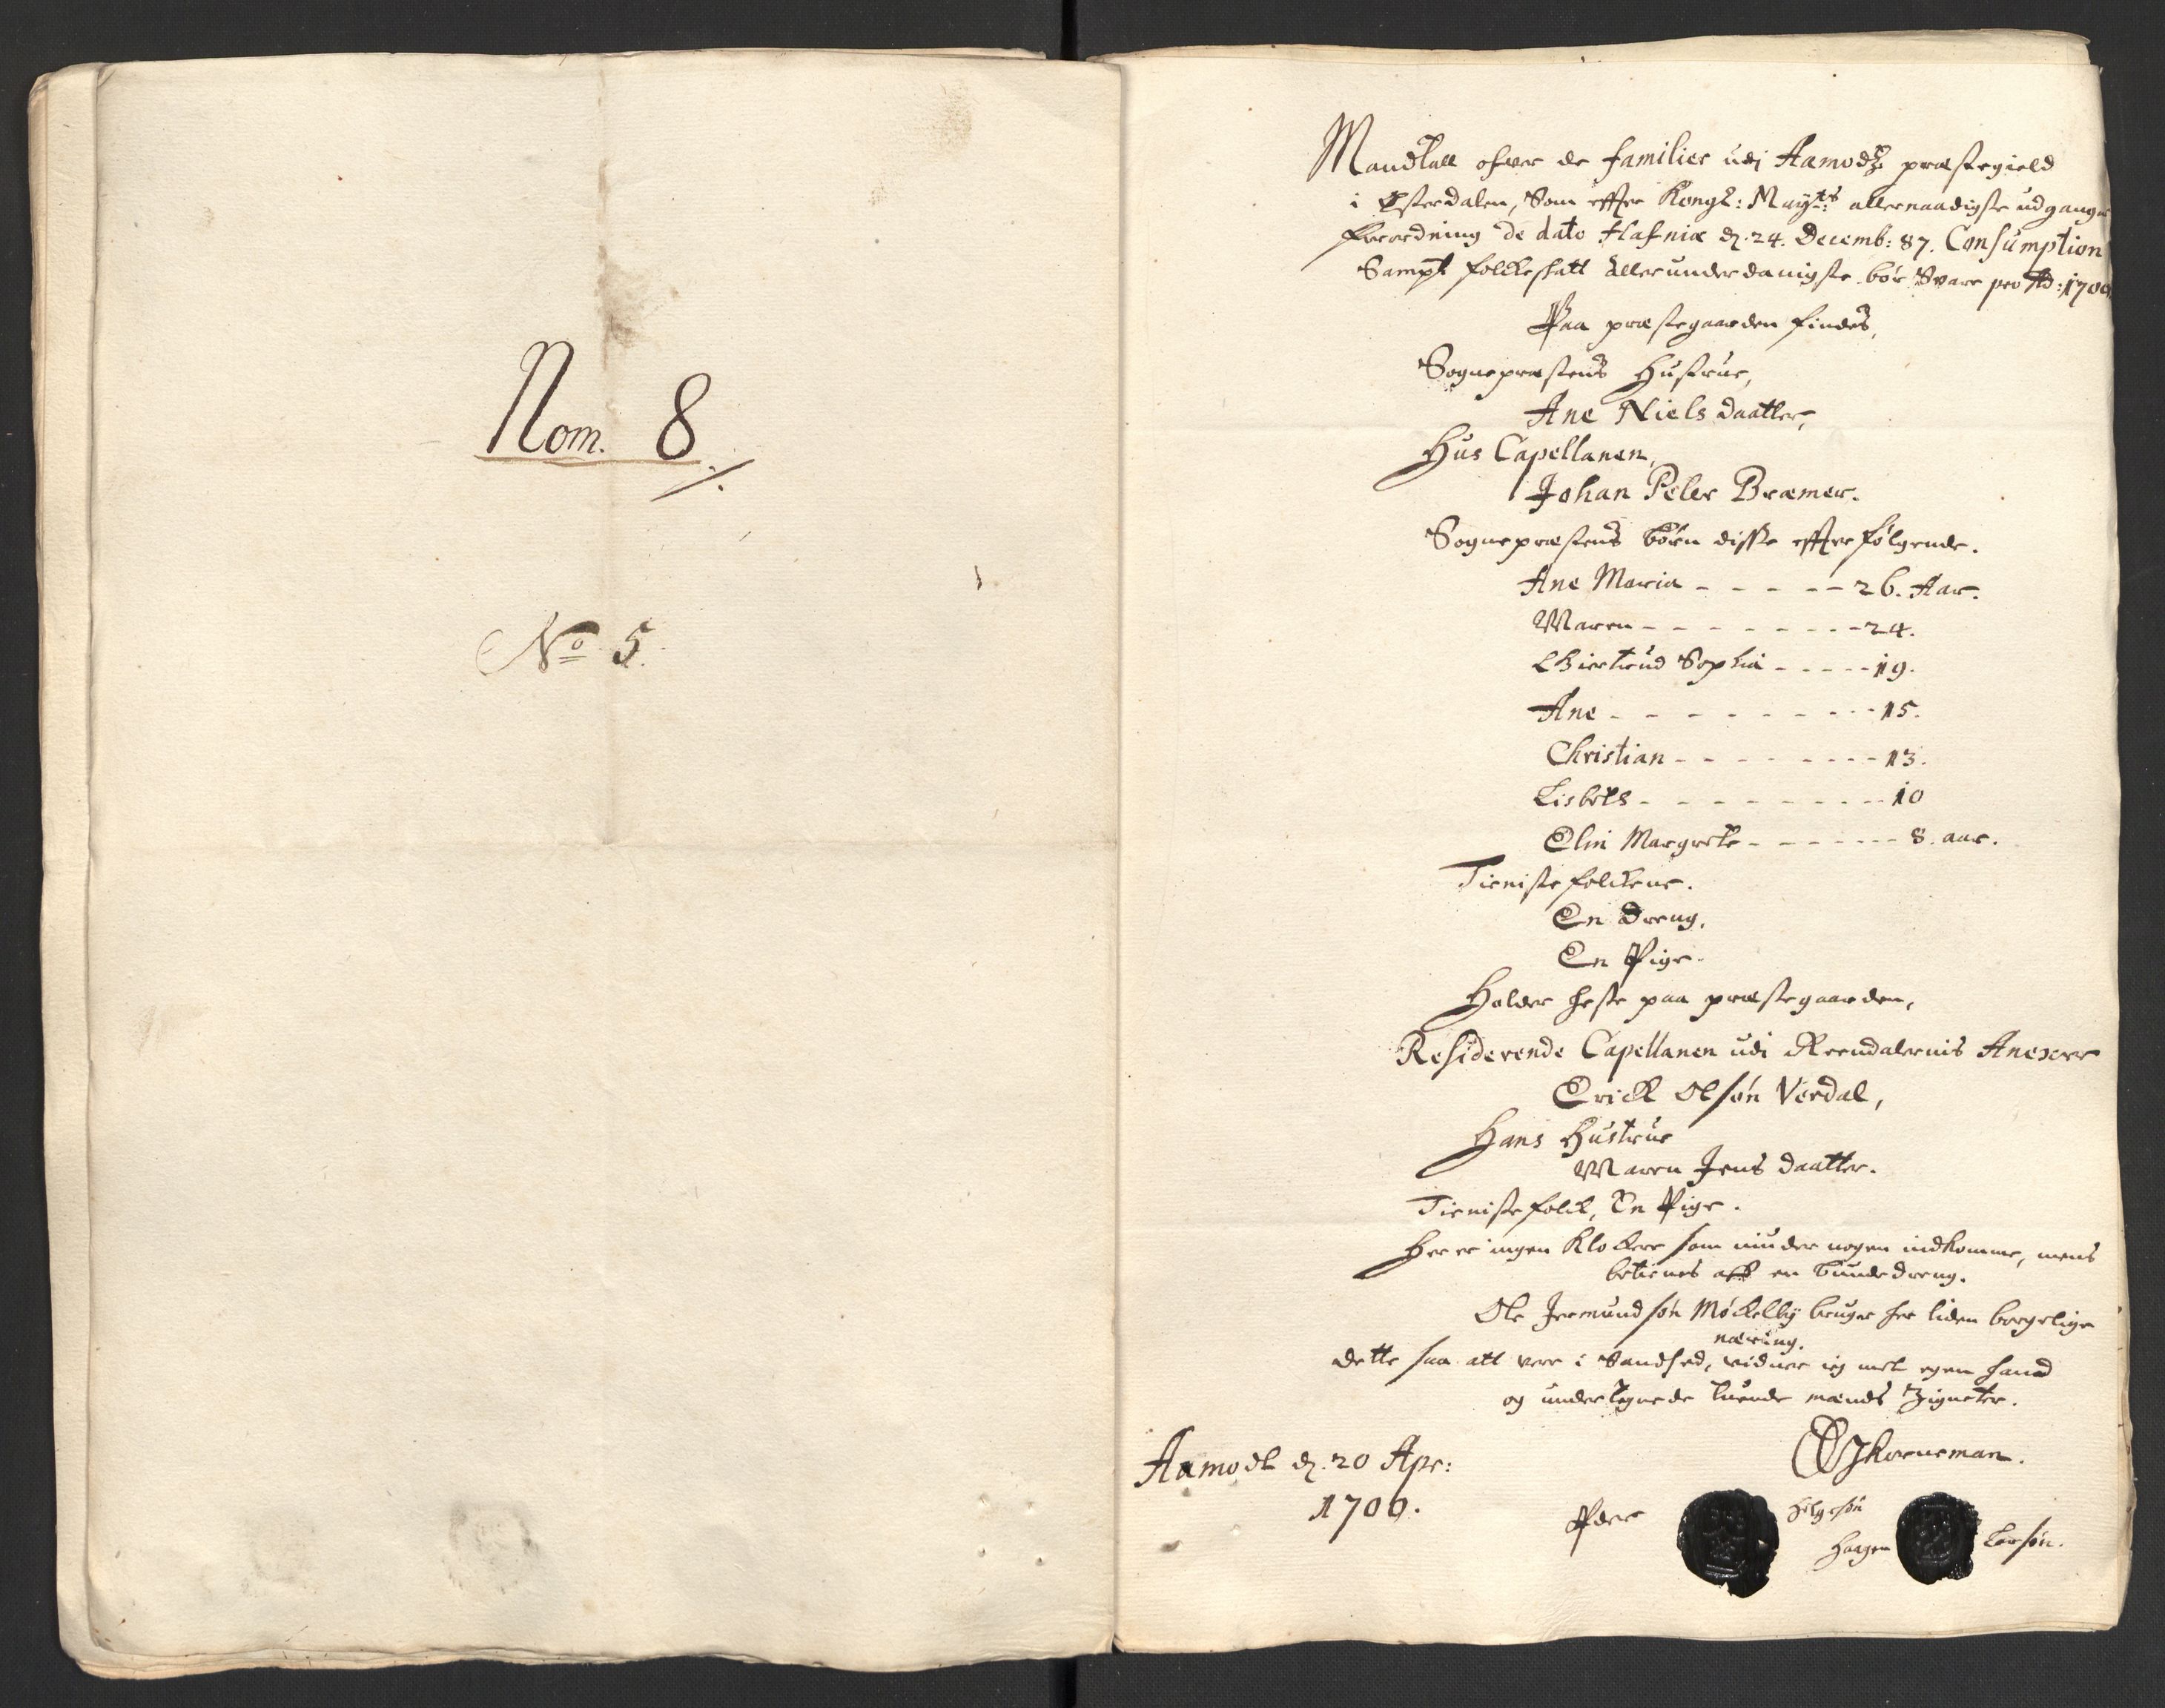 Nom. 8
No 5.
Mandtall ofver de familier udj Aamodtz præstegield
i Østerdalen, Som effter Kongl: Mayts: allernaadigste udgangne
forordning de dato Hafniæ d. 24. Decemb: 87. Consumption
Sampt folcke skatt allerunderdanigste bör Svare pro Ao: 1700
Paa præstegaarden findes,
Sognepræstens Hustrue,
Ane Niels daatter,
Hus Capellanen,
Johan Peter Bræmer.
Sognepræstens börn disse effterfölgende.
Ane Maria - - - - - 26. Aar.
Maren - - - - - - - - 24.
Giertrud Sophia - - - - - 19.
Ane - - - - - - - - - 15.
Christian - - - - - - - - 13.
Lisbeth - - - - - - - - - 10
Elin Margrete - - - - - - 8. aar.
Tieniste folckene.
En dreng.
En Pige.
Holder heste paa præstegaarden,
Residerende Capellanen udi Reendalernis Anexer
Erick Olsön Verdal,
Hans Hustrue
Maren Jens daatter.
Tieniste folck, En Pige.
Her er ingen Klockere som niuder nogen indkomme, mens
betienes aff en bunde dreng.
Ole Jermundsön Möckelby bruger her liden borgelige
næring.
dette saa att vere i Sandhed, vidner ieg met egen haand
og undertegnede tuende mænds Zigneter.
Skoeneman.
Aamodt d. 20 Apr:
1700.
Peder Helgesön
Haagen Larsön.